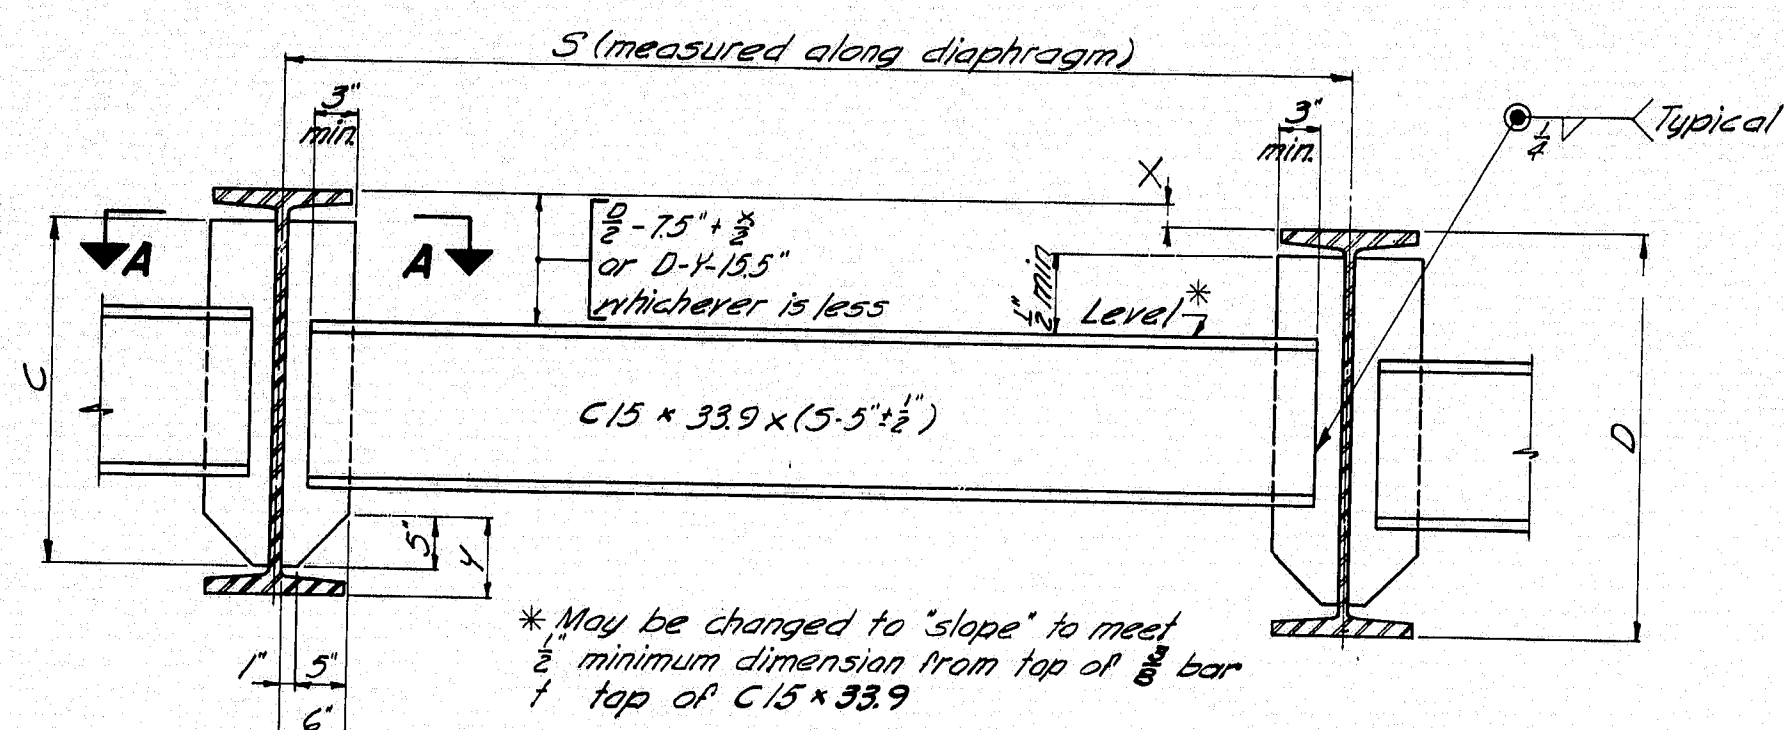 S (measured along diaphragm)
3"
min.
3"
min.
1/4
Typical
X
D/2 - 7.5" + x/2
or D-Y-15.5"
whichever is less
A
A
1/2" min
Level *
C
C 15 x 33.9 x (S-5" ± 1/2")
D
5"
Y
* May be changed to "slope" to meet
1/2" minimum dimension from top of bar
t top of C 15 x 33.9
1"
5"
6"